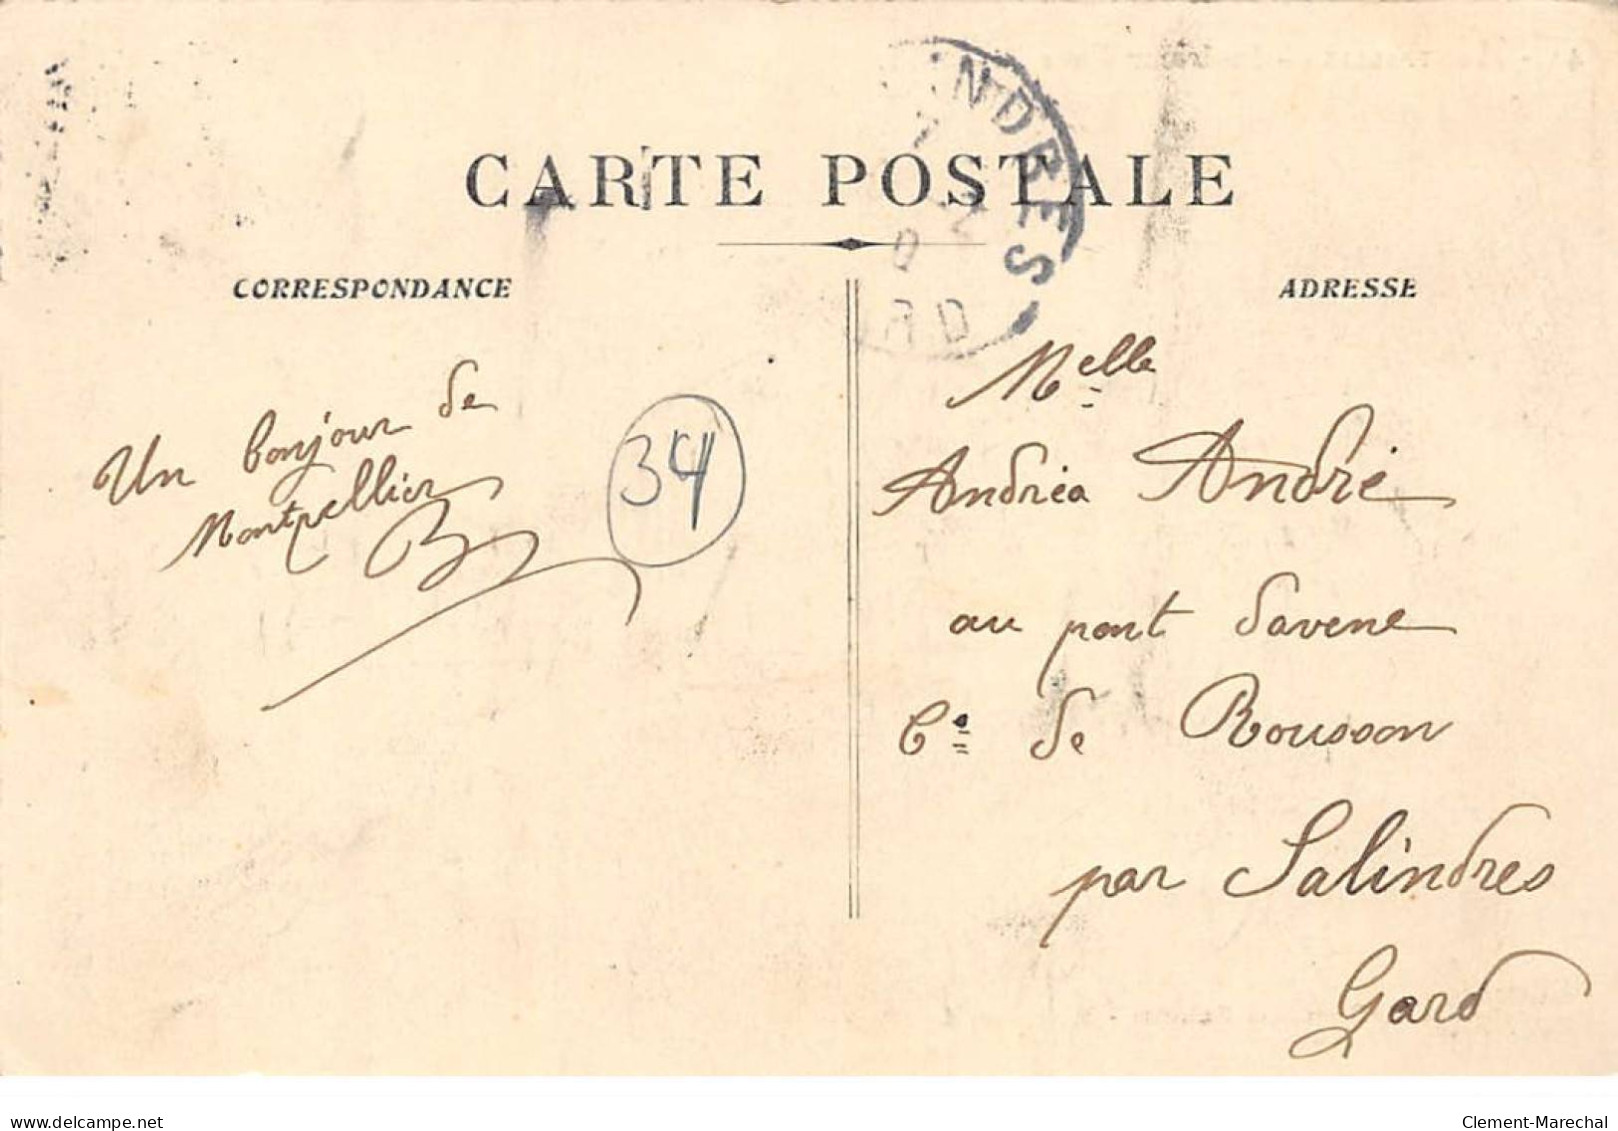 CARTE POSTALE
CORRESPONDANCE
ADRESSE
NDRES
RD
Un bonjour de
Montpellier
34
Melle
Andréa André
au pont davene
Cne de Rousson
par Salindres
Gard
www.delcampe.net
Clement-Marechal